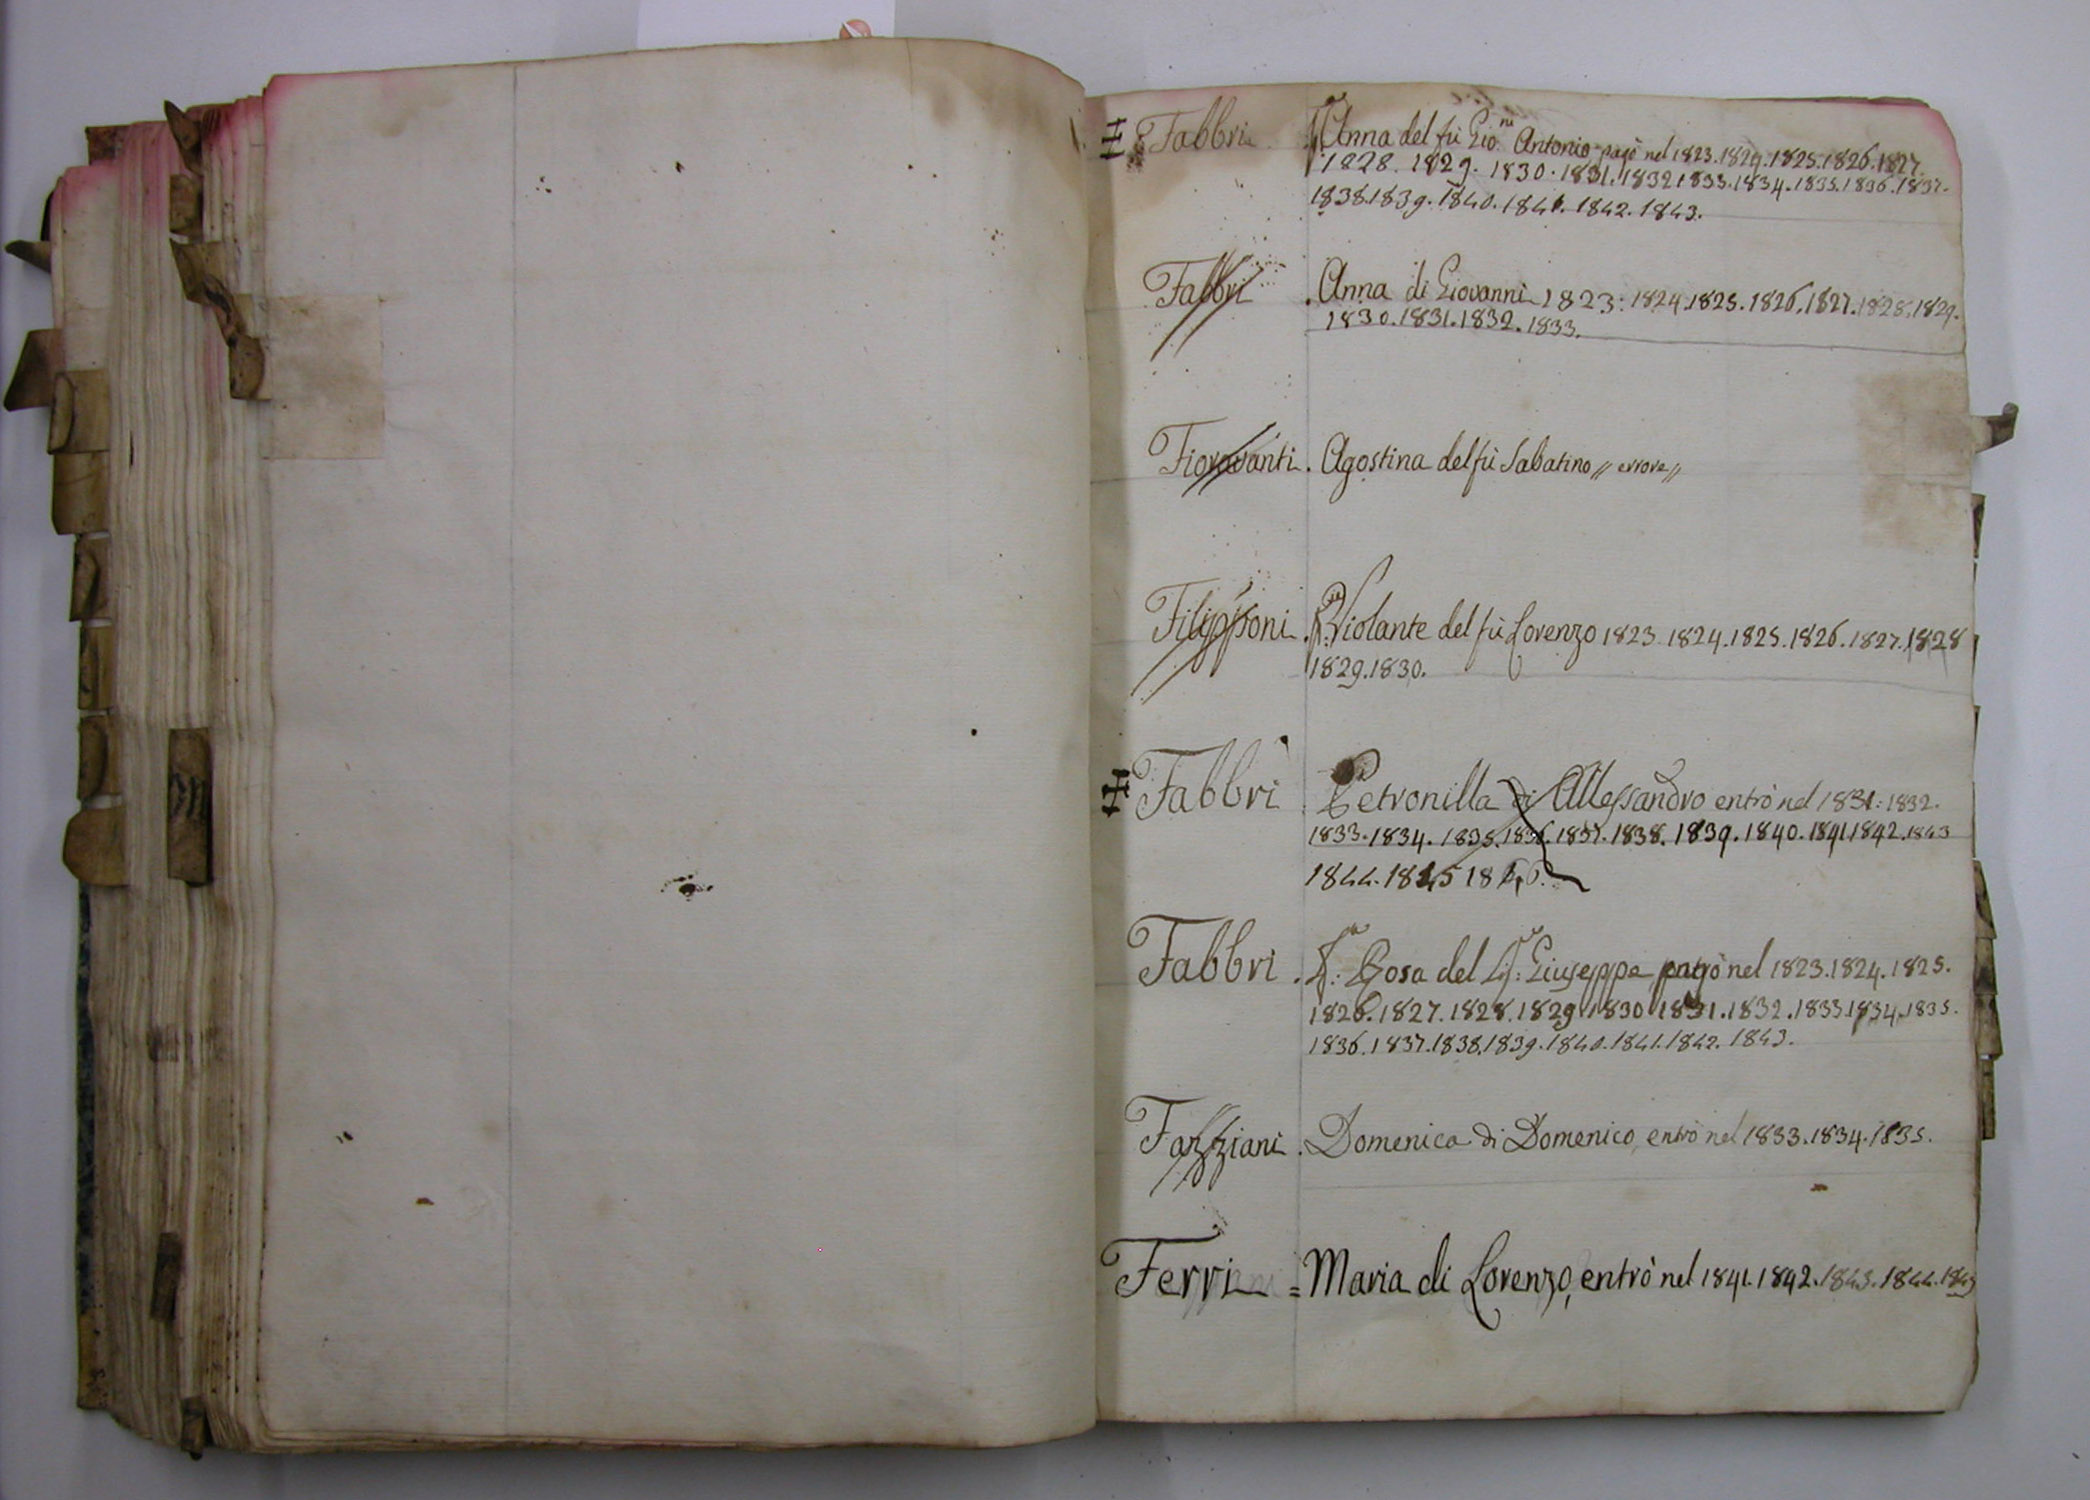 Fabbri Sra Anna del fù Gio.ni Antonio pagò nel 1823.1824.1825.1826.1827.
1828. 1829. 1830. 1831. 1832. 1833. 1834. 1835. 1836. 1837.
1838. 1839. 1840. 1841. 1842. 1843.
Fabbri . Anna di Giovanni 1823. 1824. 1825. 1826. 1827. 1828. 1829.
1830. 1831. 1832. 1833.
Fioravanti . Agostina del fù Sabatino // errore //
Filipponi . Violante del fù Lorenzo 1823. 1824. 1825. 1826. 1827. 1828
1829. 1830.
Fabbri . Petronilla di Allessandro entrò nel 1831. 1832.
1833. 1834. 1835. 1836. 1837. 1838. 1839. 1840. 1841. 1842. 1843
1844. 1845 1846.
Fabbri . Sra: Rosa del Sig: Giuseppe, pagò nel 1823. 1824. 1825.
1826. 1827. 1828. 1829. 1830. 1831. 1832. 1833. 1834. 1835.
1836. 1837. 1838. 1839. 1840. 1841. 1842. 1843.
Fazziani . Domenica di Domenico, entrò nel 1833. 1834. 1835.
Ferri = Maria di Lorenzo, entrò nel 1841. 1842. 1843. 1844. 1845